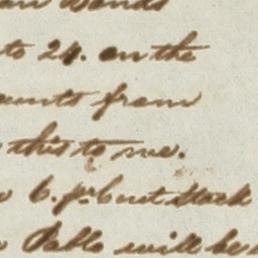 Bonds
to 24. on the
ounts from
this to me.
6. pr. Cent Stock
Pablo will be